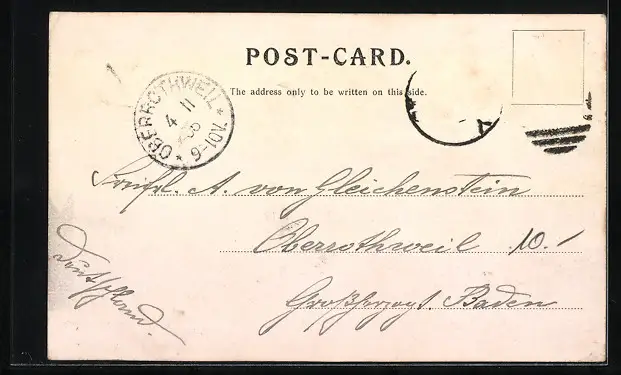 POST-CARD.
The address only to be written on this side.
OBERROTHWEIL
4 11
9-10V.
Freifrl. A. von Gleichenstein
Oberrothweil 10.
Großherzogt. Baden
Deutschland.